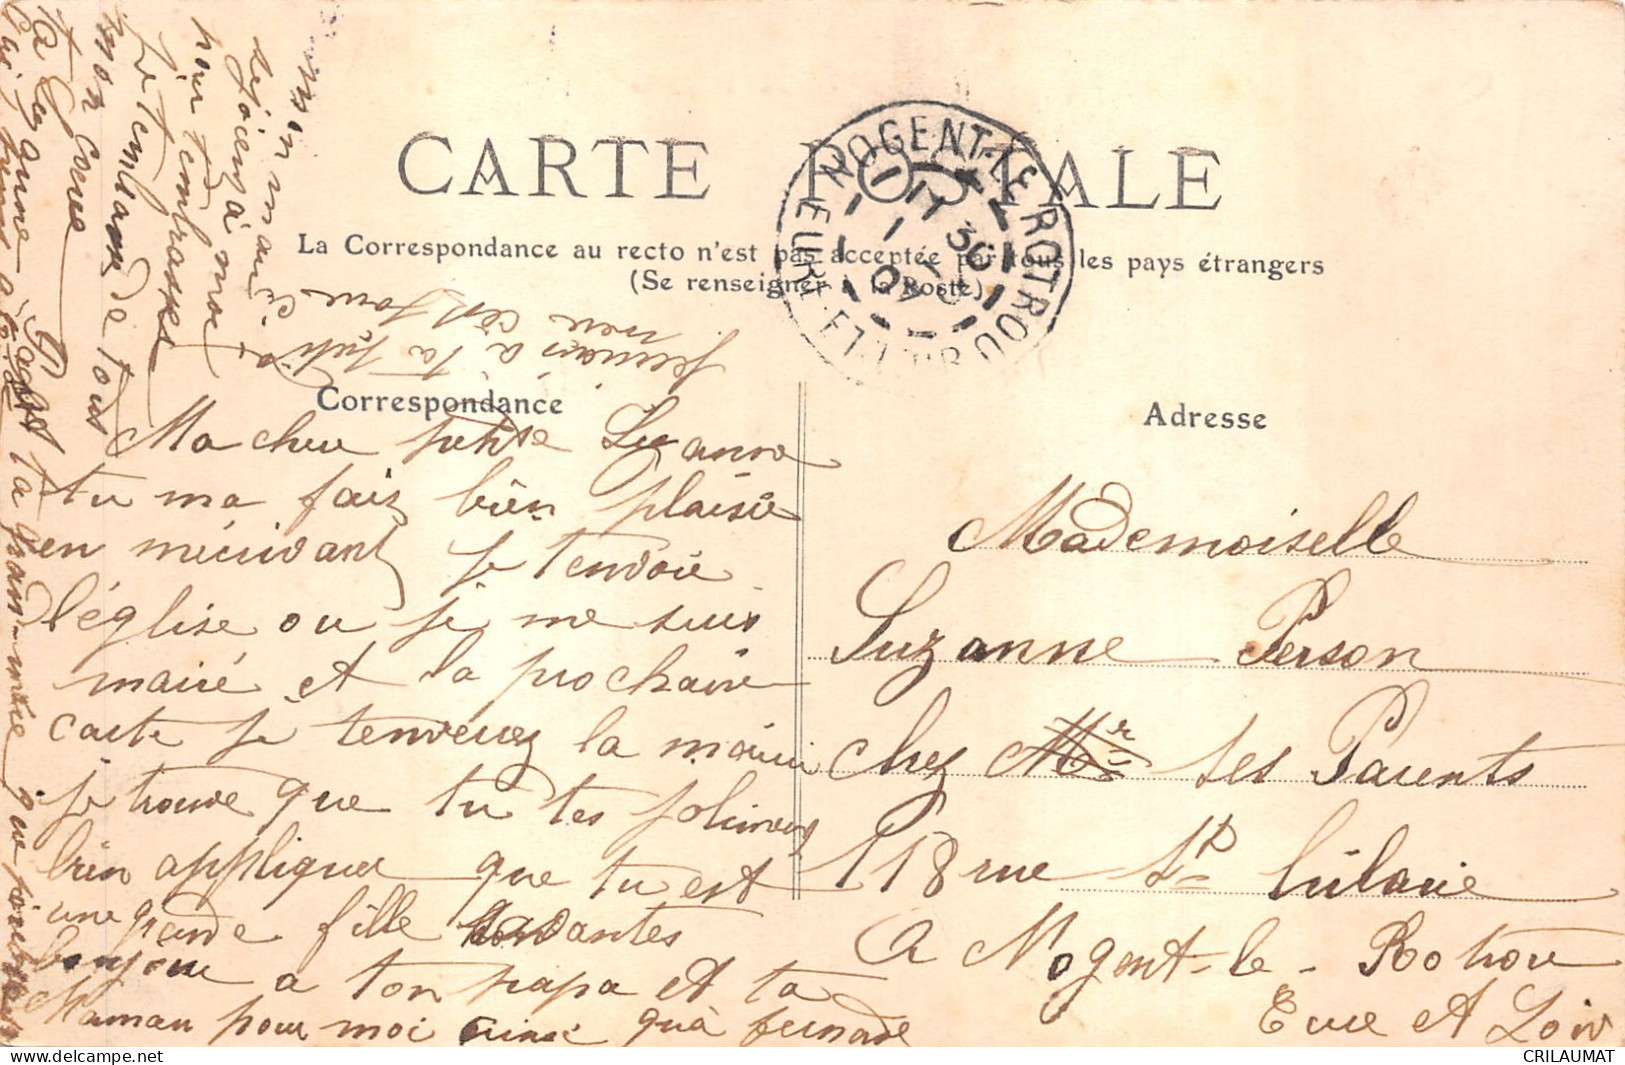 CARTE POSTALE
La Correspondance au recto n'est pas acceptée par tous les pays étrangers
(Se renseigner à la Poste)
NOGENT-LE-ROTROU
EURE-ET-LOIR
11 30
Correspondance
Ma chere petite Suzanne
tu ma fais bien plaisir
en mécrivant je tenvoie
l'église ou je me suis
marié et la prochaine
carte je tenverrez la mairie
je trouve que tu tes joliment
bien appliquer que tu est
une grande fille
bonjour a ton papa et ta
Maman pour moi quà fernade
mon mari
se joient à moi
pour tembrasses
je tembrasse de tous
mon Coeur
ta Cousine
la grand-mère
Adresse
Mademoiselle
Suzanne Person
chez Mr ses Parents
118 rue St hilaire
A Nogent-le-Rotrou
Eure et Loir
CRILAUMAT